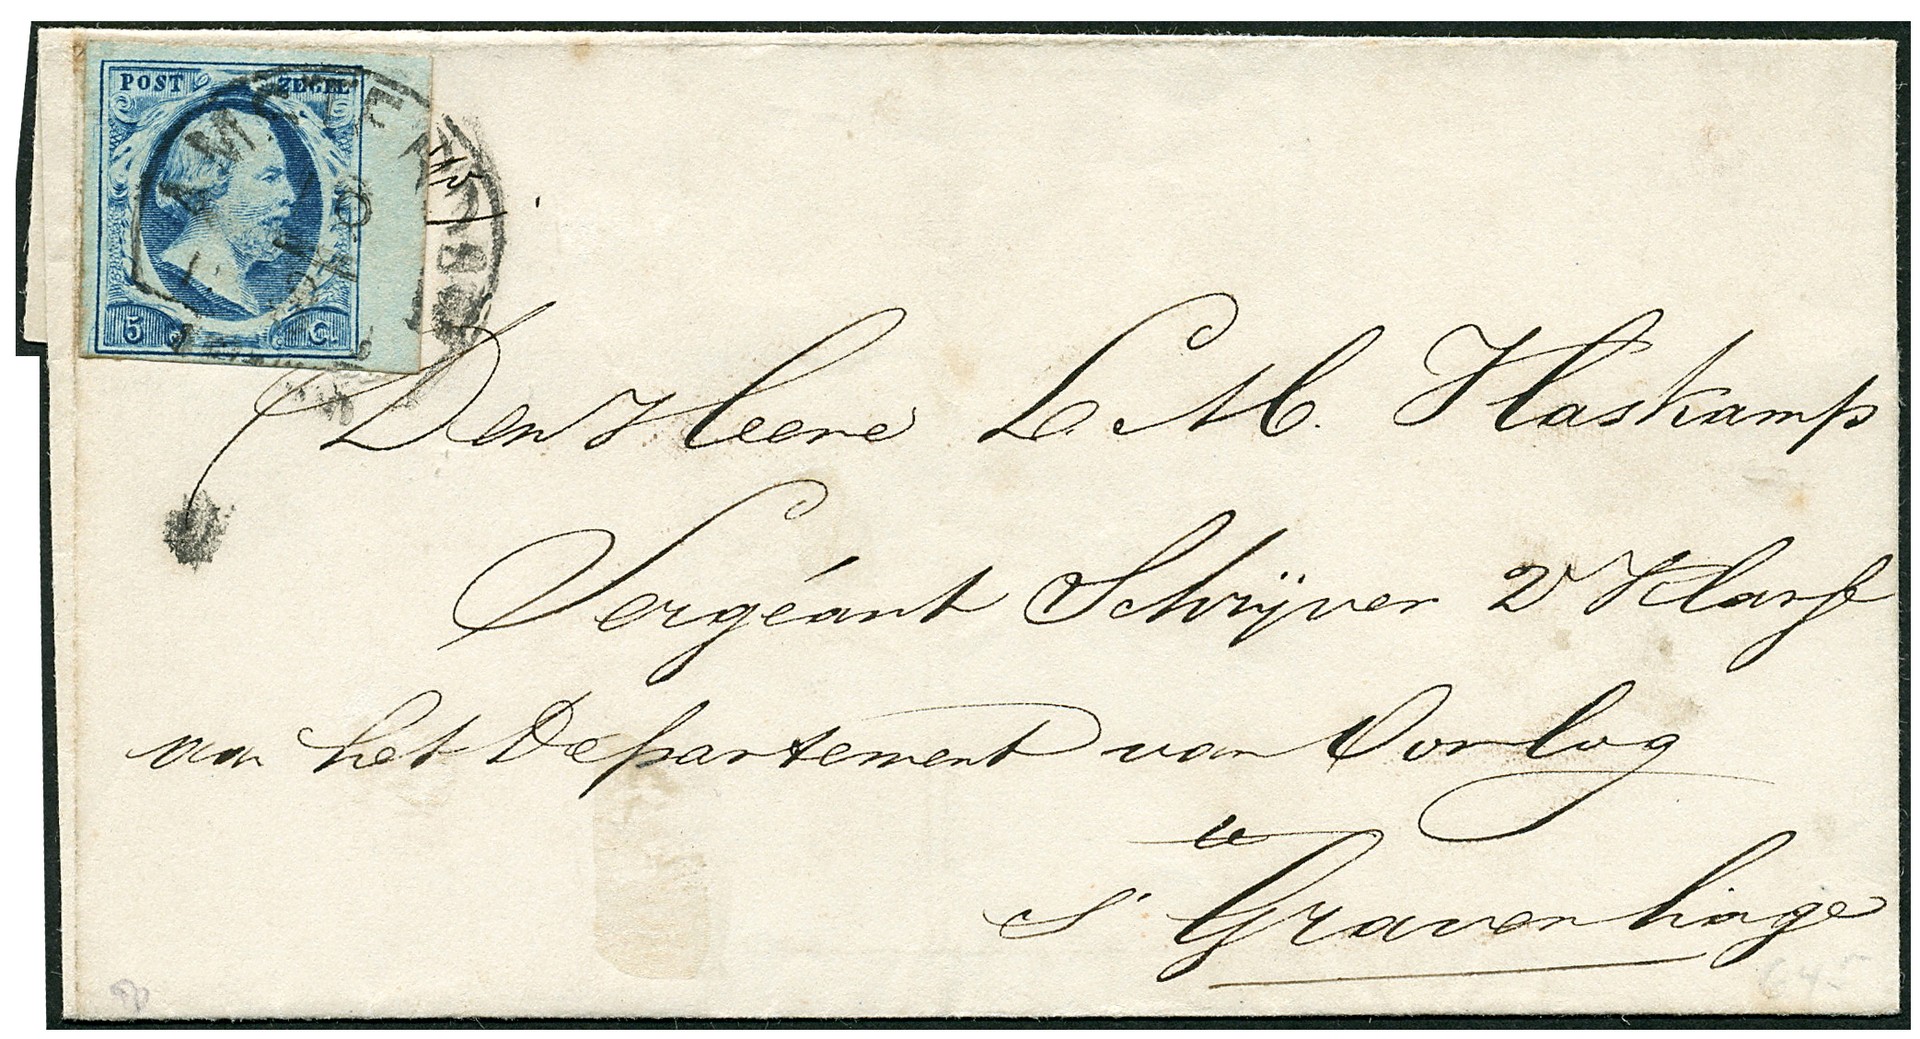 POST ZEGEL
AMSTER
5 C.
Den Heere L. M. Haskamp
Sergéant Schrijver 2e Klasse
van het Departement van Oorlog
te
s' Gravenhage